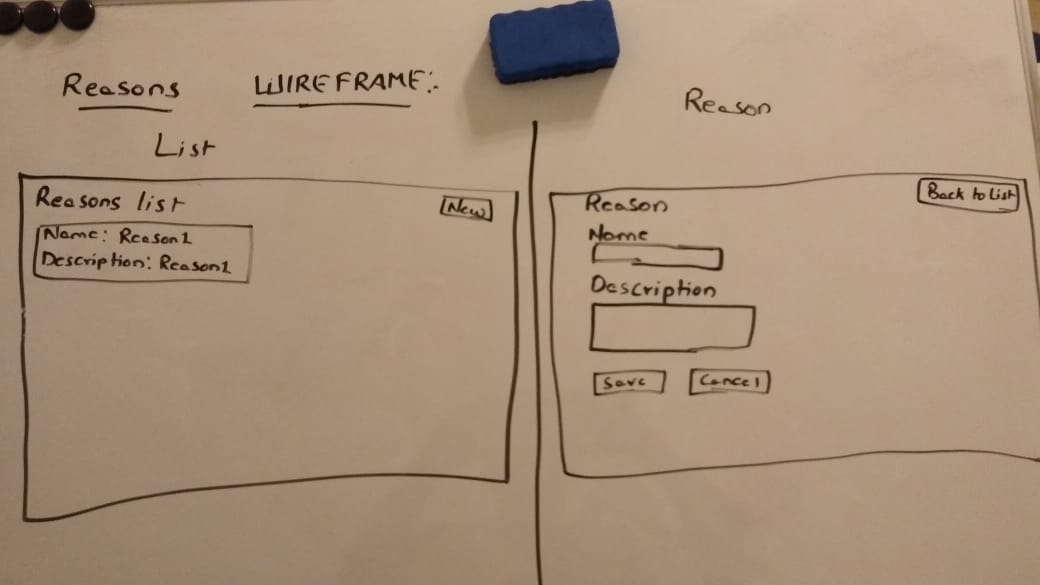 Reasons WIREFRAME:-
List
Reasons list
New
Name: Reason1
Description: Reason1
Reason
Back to List
Reason
Name
Description
Save Cancel